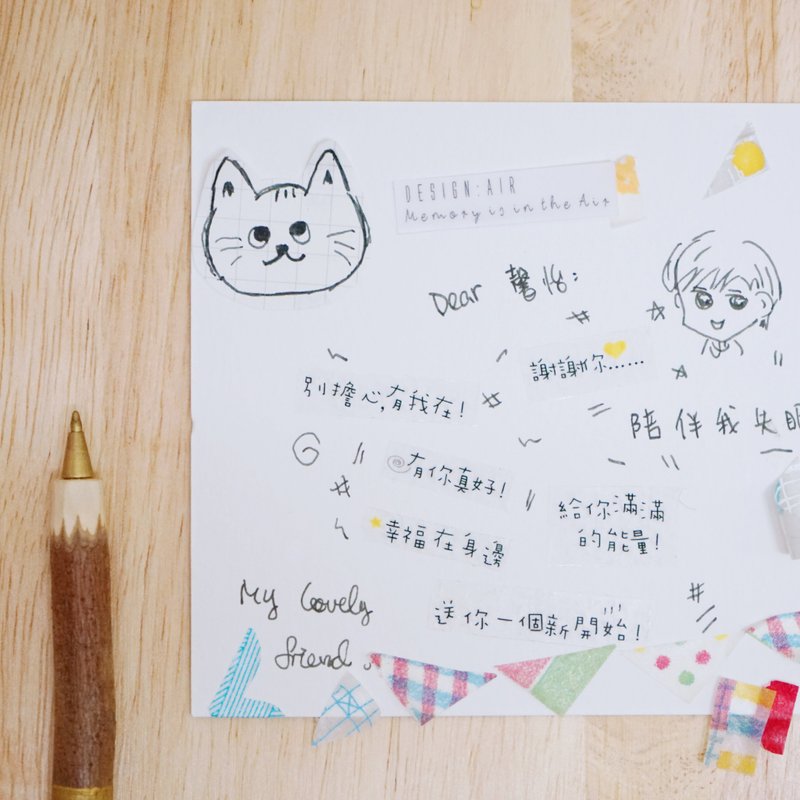 DESIGN:AIR
Memory is in the Air
Dear 馨怡:
謝謝你......
別擔心,有我在!
陪伴我失眠
有你真好!
給你滿滿
的能量!
幸福在身邊
My lovely
friend.
送你一個新開始!